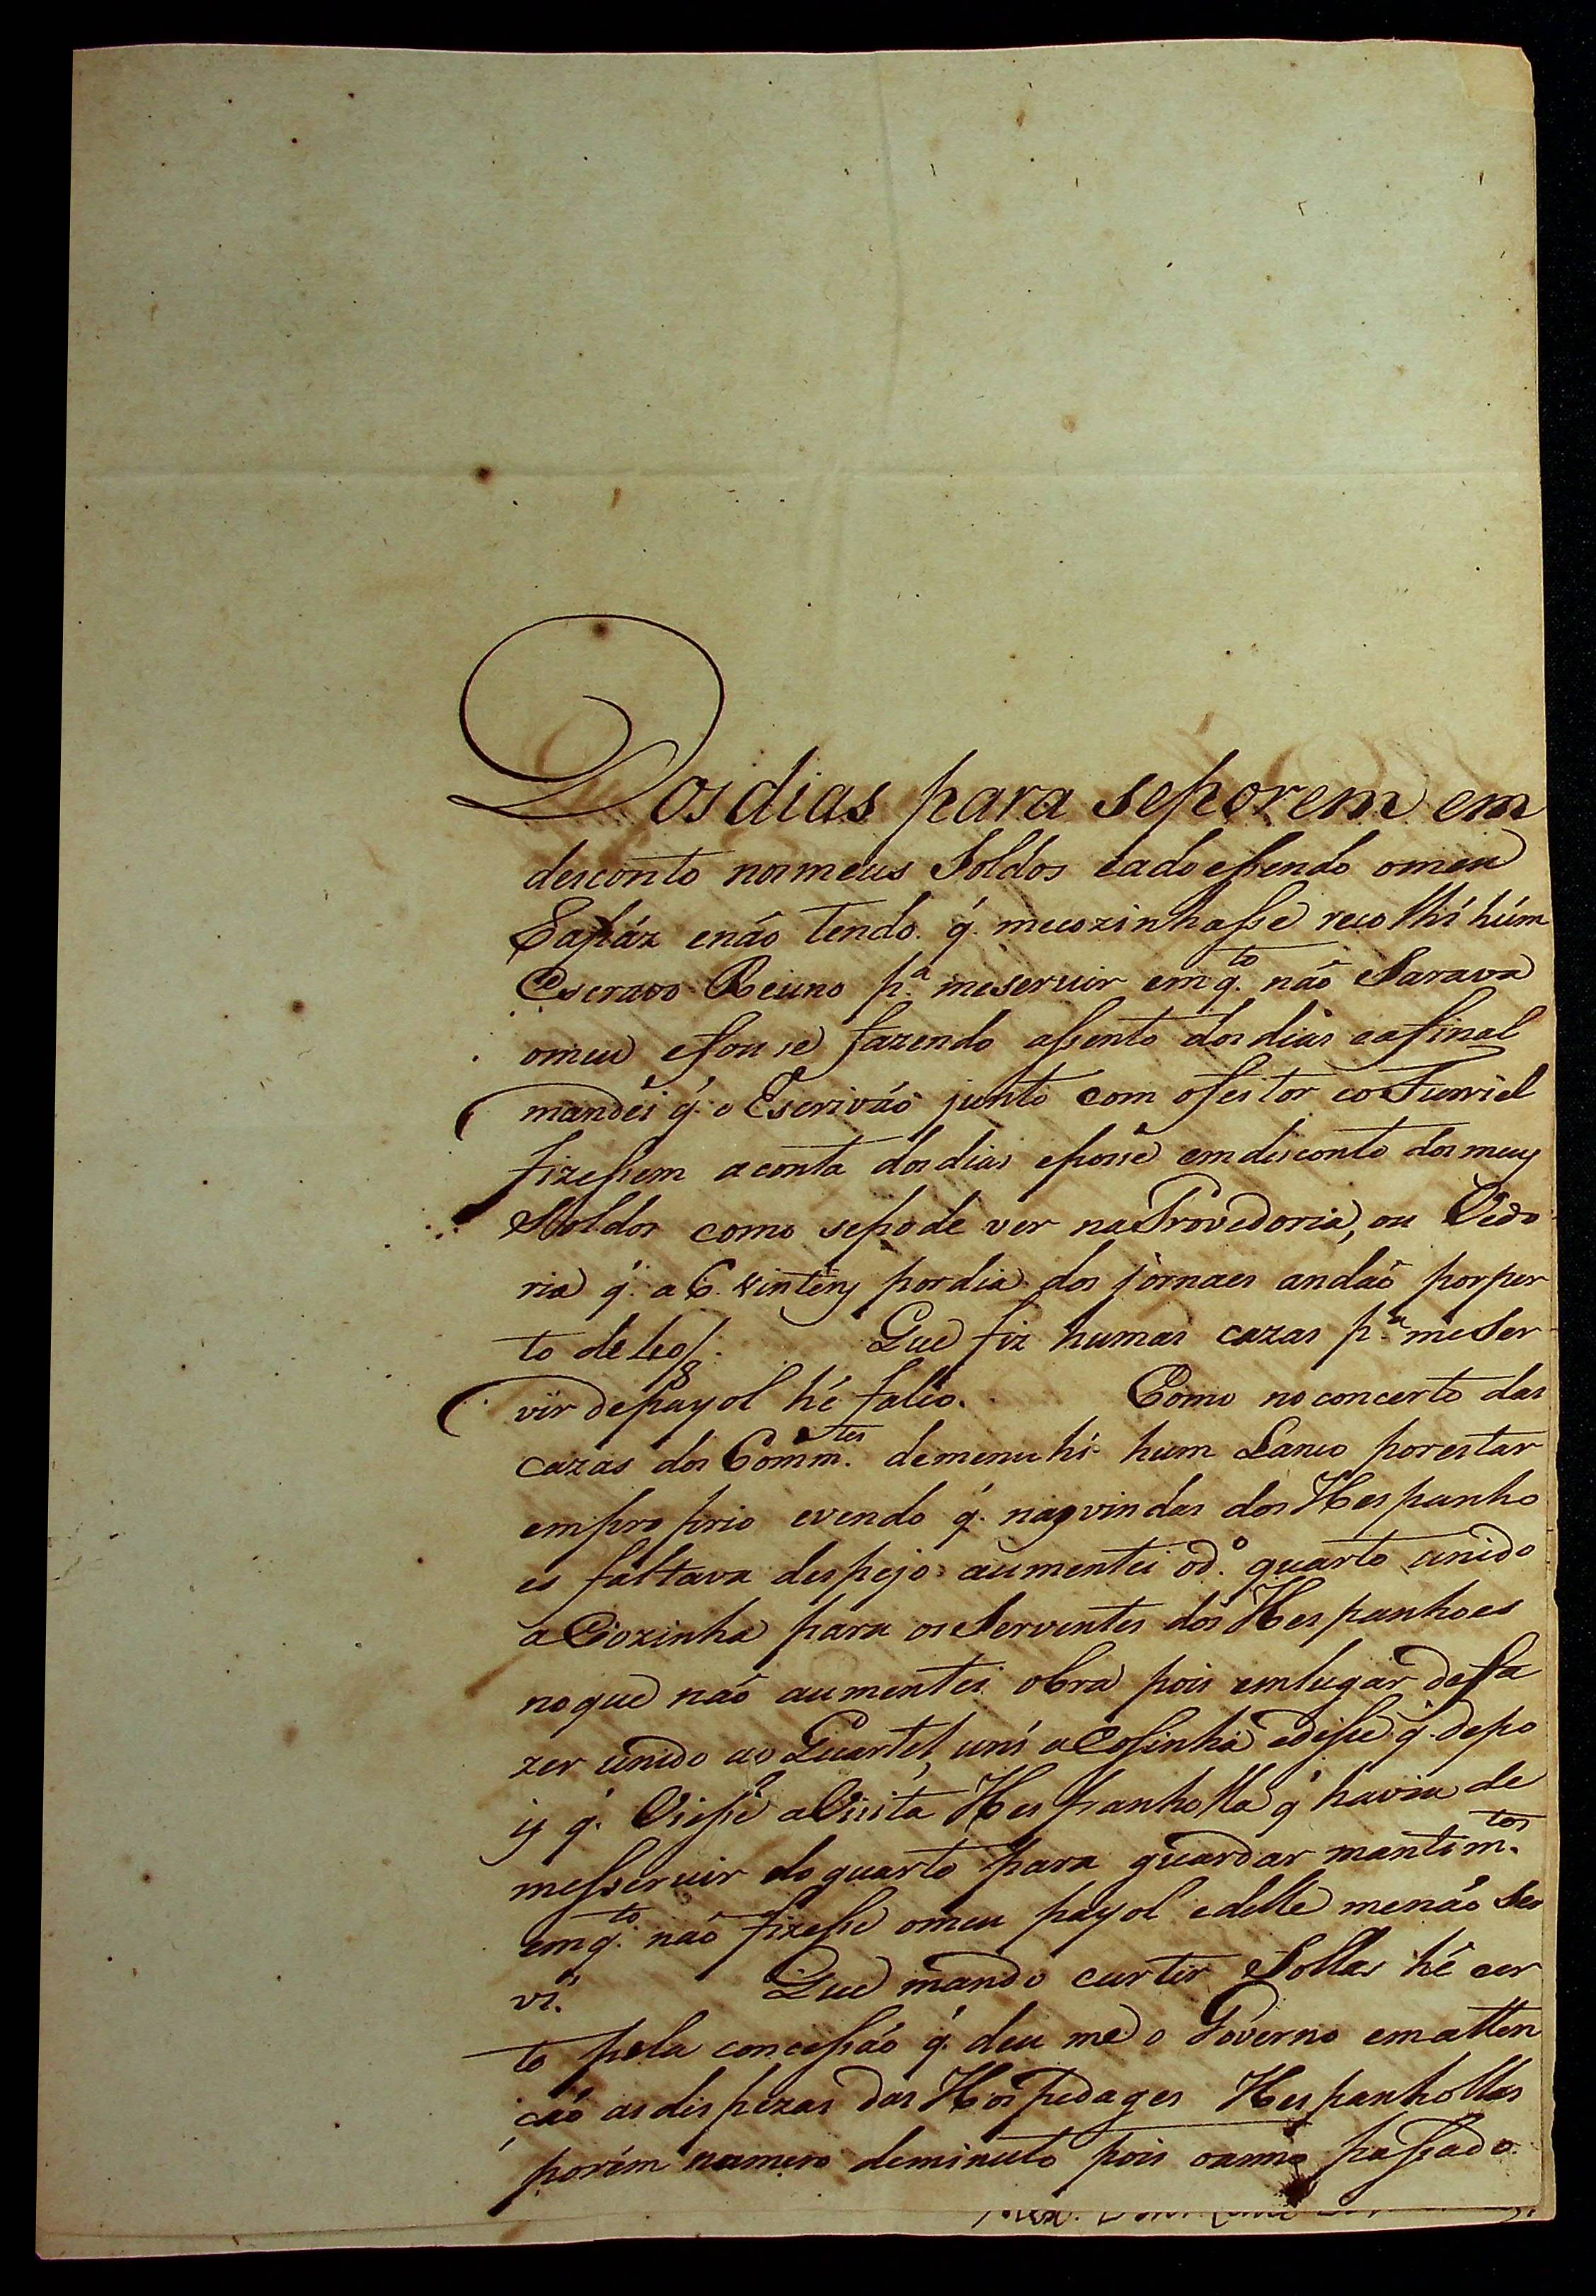 Dos dias para seporem em
desconto nos meus Soldos eadoessendo omeu
Rapáz enão tendo q̃. mecozinhasse recolhi húm
Escravo Reiuno p.ᵃ meservir emq.ᵗᵒ não Sarava
omeu efouse fazendo assento dos dias eafinal
mandei q̃. o Escrivão junto com ofeitor eoFurriel
fizessem aconta dos dias eposse emdesconto dos meus
Soldos como sepode ver naProvedoria, ou Vedo
ria q̃. a 6. vinteñs pordia dos jornaes andaõ porper
to de 40/8. Que fiz humas cazas p.ᵃ meser
vir depayol hé falço. Como noconcerto das
cazas dos Comm.ᵗᵉˢ demenuhi hum Lanço porestar
emproprio evendo q̃. nas vindas dos Hespanho
es faltava despejo aumentei od.º quarto unido
aCozinha para os Serventes dos Hespanhoes
noque não aumentei obra pois emlugar defa
zer unido ao Quartel, uni aCosinha edisse q̃. depo
is q̃. Viesse aVisita Hespanholla q̃ havia de
messervir do quarto para guardar mantim.ᵗᵒˢ
emq.ᵗᵒ não fizesse omeu payol edelle menão Ser
vi. Que mando curtir Sollas hé cer
to pela concessão q̃. deu me o Governo ematten
ção as dispezas das Hospedages Hespanhollas
porém numero deminuto pois oanno passado